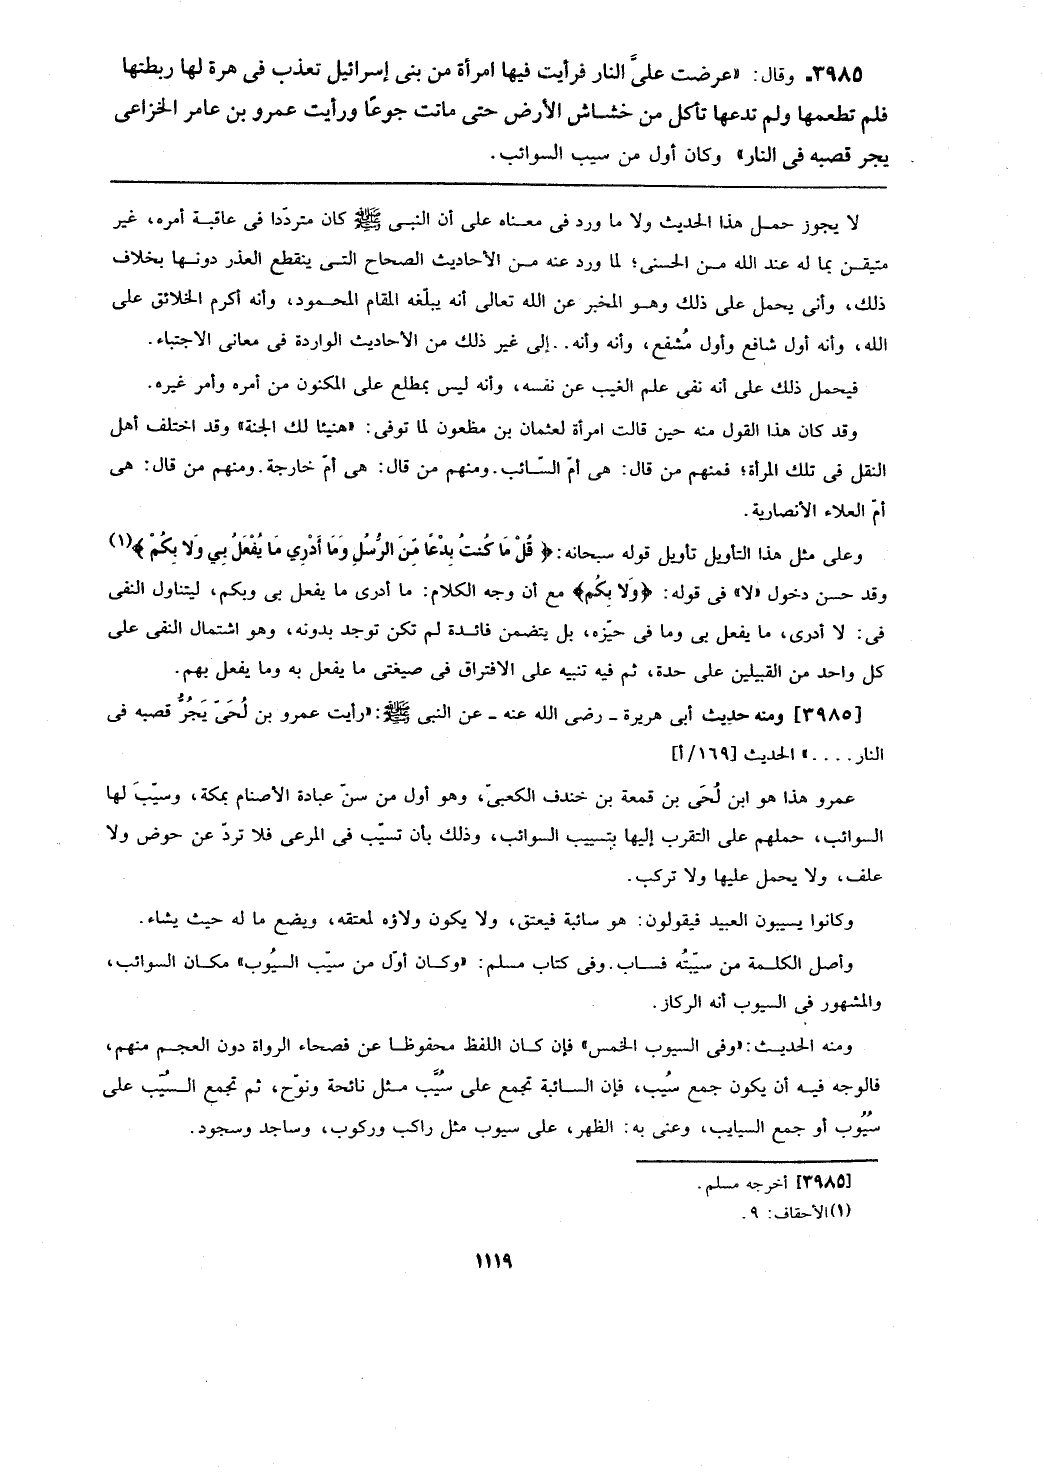 ٣٩٨٥ـ وقال: «عرضت علىَّ النار فرأيت فيها امرأة من بنى إسرائيل تعذب فى هرة لها ربطتها
فلم تطعمها ولم تدعها تأكل من خشاش الأرض حتى ماتت جوعًا ورأيت عمرو بن عامر الخزاعى
يجر قصبه فى النار» وكان أول من سيب السوائب.
لا يجوز حمل هذا الحديث ولا ما ورد فى معناه على أن النبى ﷺ كان متردّدا فى عاقبة أمره، غير
متيقن بما له عند الله من الحسنى؛ لما ورد عنه من الأحاديث الصحاح التى ينقطع العذر دونها بخلاف
ذلك، وأنى يحمل على ذلك وهو المخبر عن الله تعالى أنه يبلّغه المقام المحمود، وأنه أكرم الخلائق على
الله، وأنه أول شافع وأول مُشفع، وأنه وأنه. .إلى غير ذلك من الأحاديث الواردة فى معانى الاجتباء.
فيحمل ذلك على أنه نفى علم الغيب عن نفسه، وأنه ليس بمطلع على المكنون من أمره وأمر غيره.
وقد كان هذا القول منه حين قالت امرأة لعثمان بن مظعون لما توفى: «هنيئا لك الجنة» وقد اختلف أهل
النقل فى تلك المرأة؛ فمنهم من قال: هى أمّ السّائب.ومنهم من قال: هى أمّ خارجة.ومنهم من قال: هى
أمّ العلاء الأنصارية.
وعلى مثل هذا التأويل تأويل قوله سبحانه: ﴿ قُلْ مَا كُنتُ بِدْعًا مِّنَ الرُّسُلِ وَمَا أَدْرِي مَا يُفْعَلُ بِي وَلا بِكُمْ ﴾(١)
وقد حسن دخول «لا» فى قوله: ﴿وَلا بِكُم﴾ مع أن وجه الكلام: ما أدرى ما يفعل بى وبكم، ليتناول النفى
فى: لا أدرى، ما يفعل بى وما فى حيّزه، بل يتضمن فائدة لم تكن توجد بدونه، وهو اشتمال النفى على
كل واحد من القبيلين على حدة، ثم فيه تنبيه على الافتراق فى صيغتى ما يفعل به وما يفعل بهم.
[٣٩٨٥] ومنه حديث أبى هريرة ـ رضى الله عنه ـ عن النبى ﷺ: «رأيت عمرو بن لُحَىّ يَجُرُّ قصبه فى
النار. . . .» الحديث [١٦٩/أ]
عمرو هذا هو ابن لُحَى بن قمعة بن خندف الكعبىّ، وهو أول من سنّ عبادة الأصنام بمكة، وسيّبَ لها
السوائب، حملهم على التقرب إليها بتسييب السوائب، وذلك بأن تسيّب فى المرعى فلا تردّ عن حوض ولا
علف، ولا يحمل عليها ولا تركب.
وكانوا يسيبون العبيد فيقولون: هو سائبة فيعتق، ولا يكون ولاؤه لمعتقه، ويضع ما له حيث يشاء.
وأصل الكلمة من سيّبتُه فساب.وفى كتاب مسلم: «وكان أوّل من سيّب السيُوب» مكان السوائب،
والمشهور فى السيوب أنه الركاز.
ومنه الحديث: «وفى السيوب الخمس» فإن كان اللفظ محفوظا عن فصحاء الرواة دون العجم منهم،
فالوجه فيه أن يكون جمع سُيب، فإن السائبة تجمع على سُيَّب مثل نائحة ونوّح، ثم تجمع السُيّب على
سُيُوب أو جمع السيايب، وعنى به: الظهر، على سيوب مثل راكب وركوب، وساجد وسجود.
[٣٩٨٥] أخرجه مسلم.
(١) الأحقاف: ٩.
١١١٩